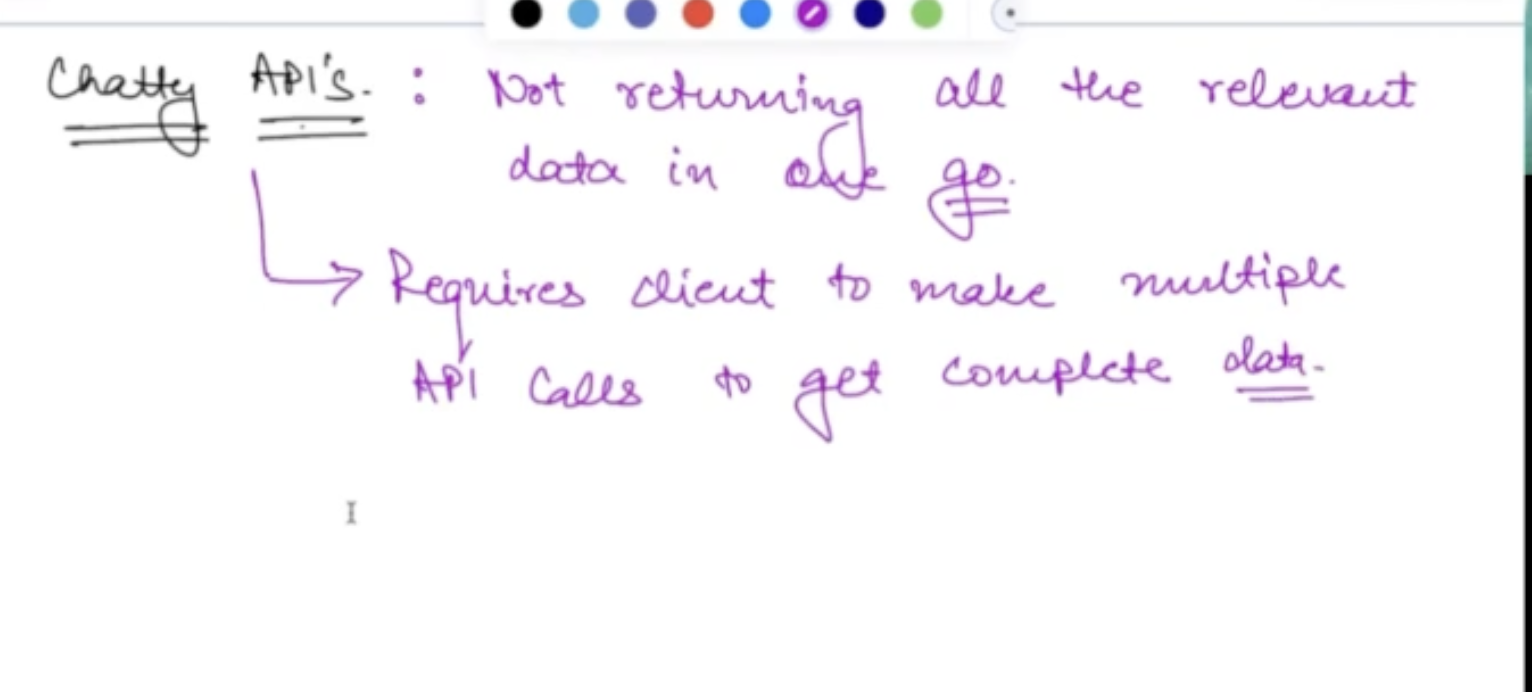 Chatty API's. : Not returning all the relevant
data in one go.
Requires client to make multiple
API Calls to get complete data.